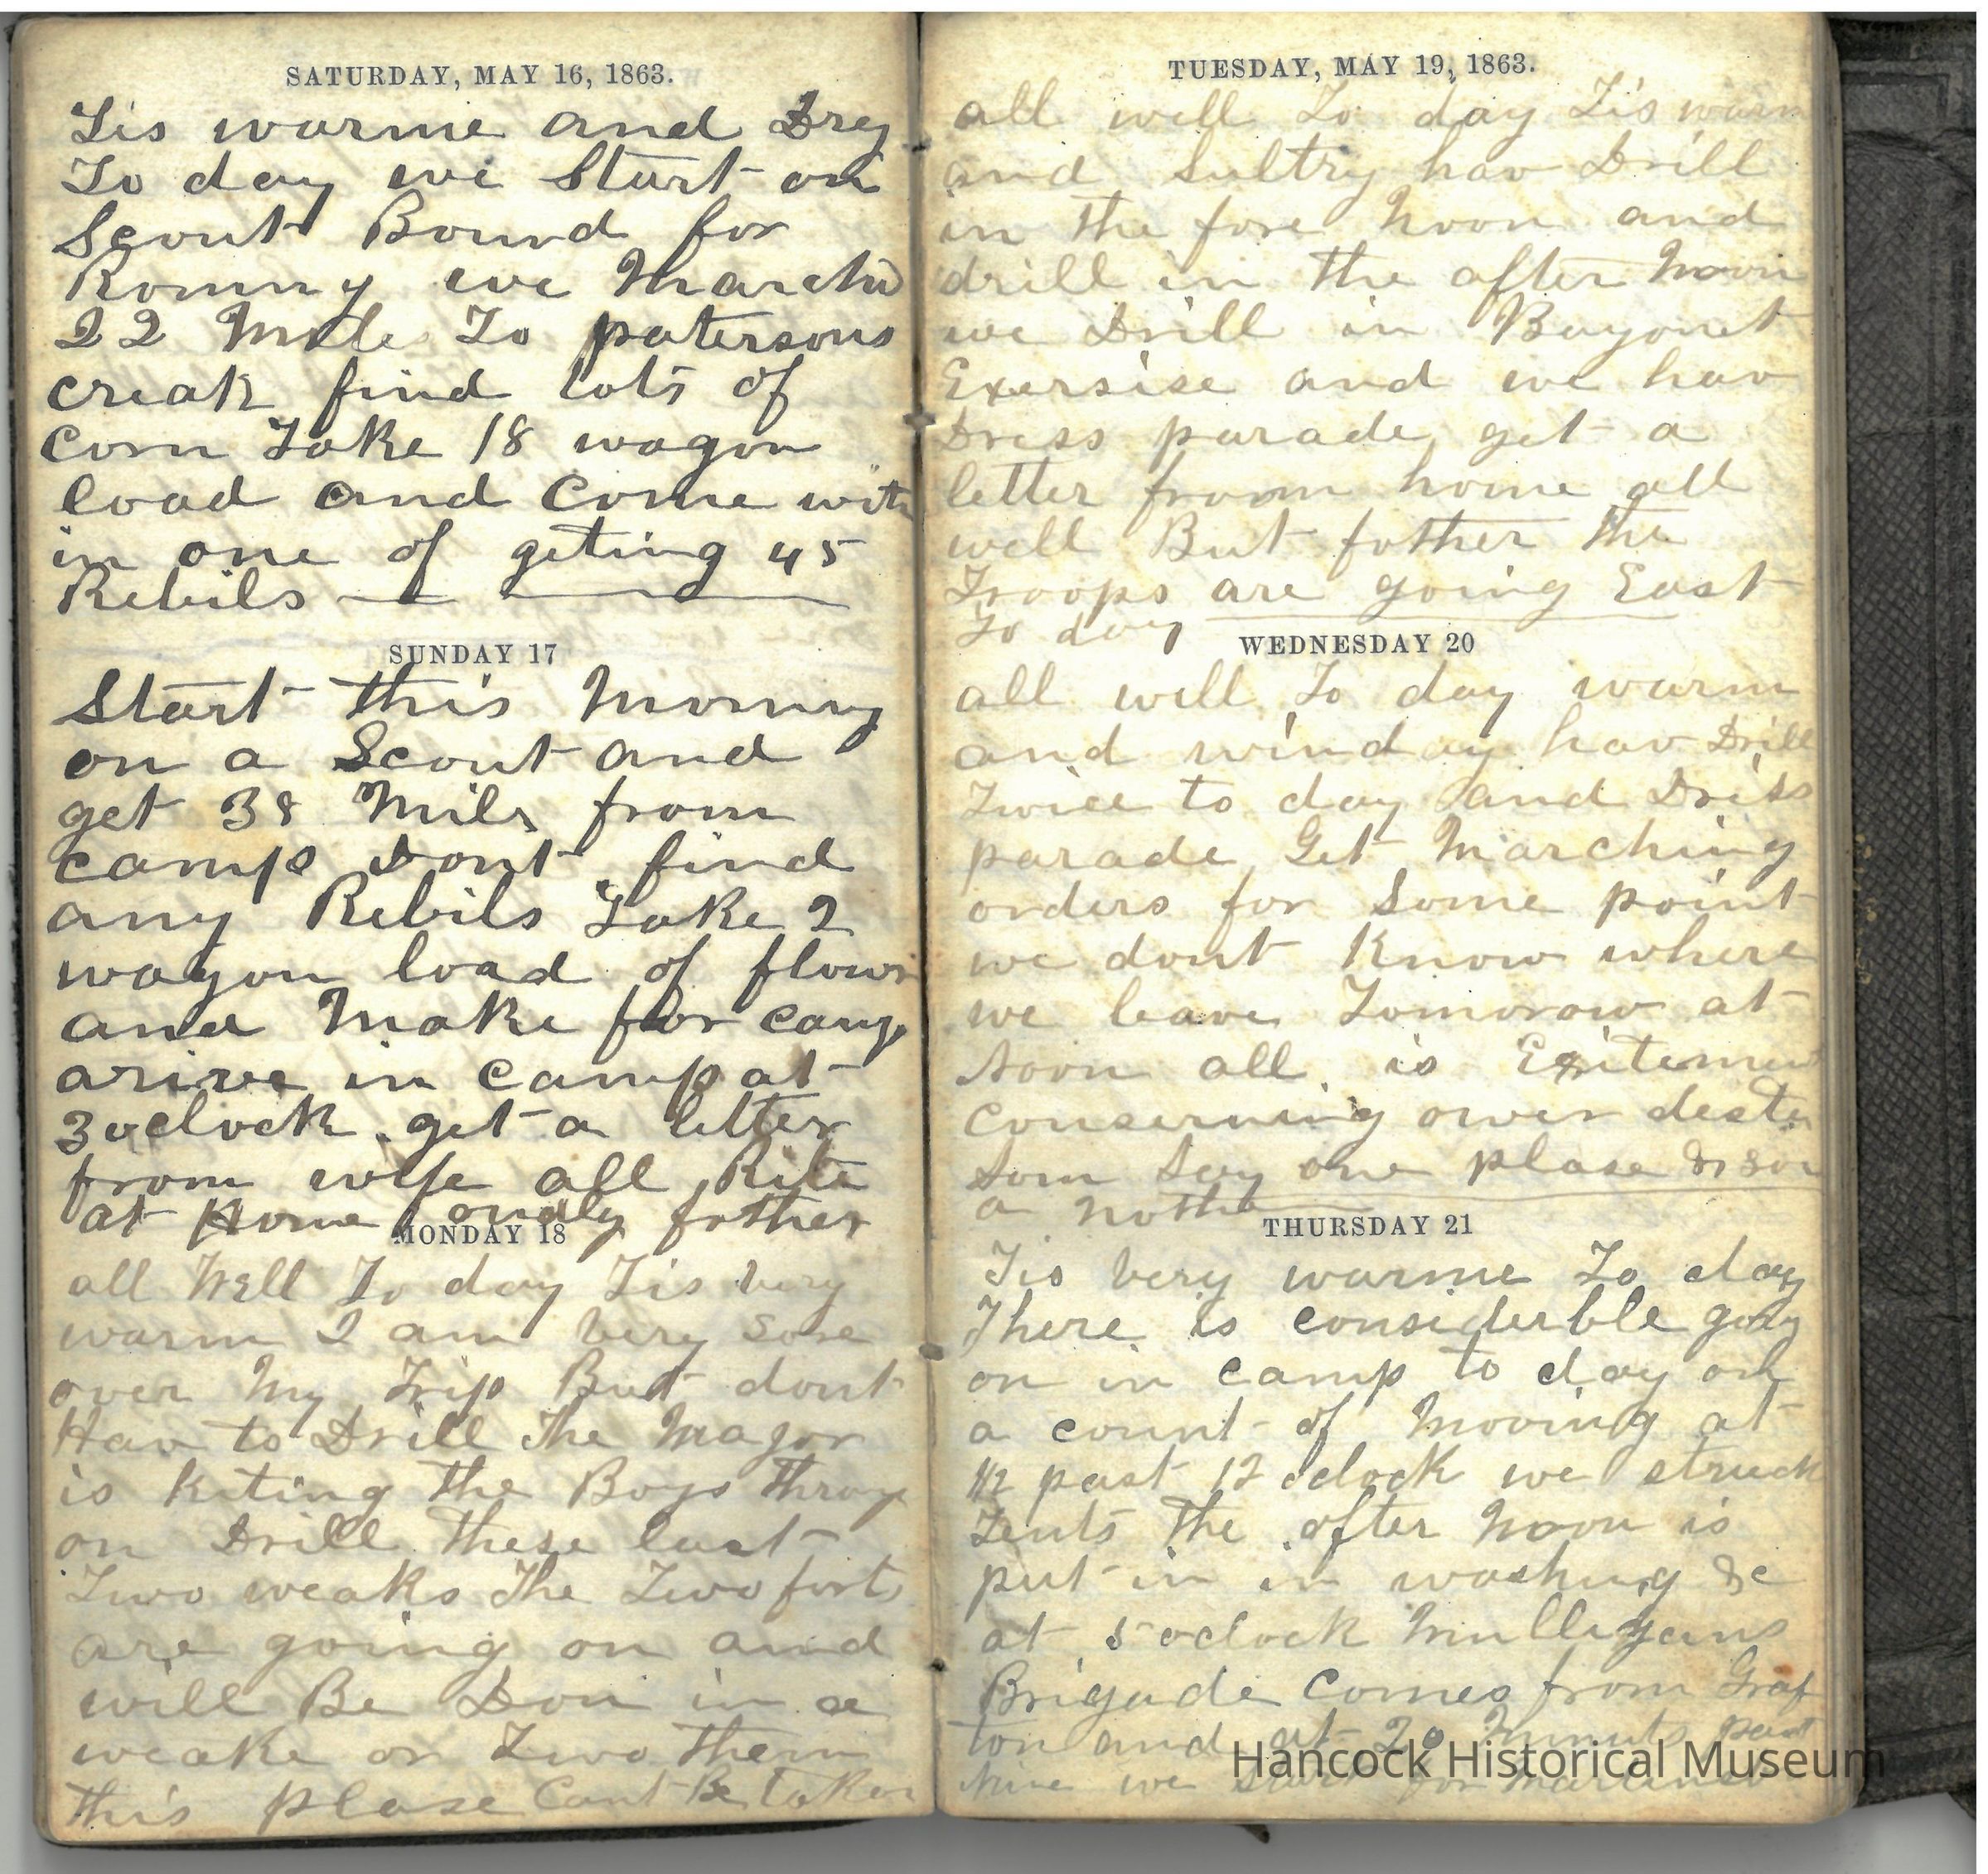 SATURDAY, MAY 16, 1863.
Tis warme and Drey
To day we Start on
Scout Bound for
Romny we Marchd
22 Mile To patersons
creak find lots of
corn Take 18 wagon
load and Come with
in one of geting 45
Rebils
SUNDAY 17
Start this Morning
on a Scout and
get 38 Mils from
camp Dont find
any Rebils Take 2
wagon load of flowr
and Make for camp
arive in camp at
3 oclock get a letter
from wife all Rite
at Home only father
MONDAY 18
all Well To day Tis very
warm I am very Sore
over My Trip But dont
Hav to Drill The Major
is Kiting the Boys Throug
on Drill these last
Two weaks The Two forts
are going on and
will Be Don in a
weake or Two Then
this plase Cant Be Taken
TUESDAY, MAY 19, 1863.
all well To day Tis warm
and Sultry hav Drill
in the fore Noon and
drill in the after Noon
we Drill in Bayonet
Exersise and we hav
Dress parade get a
letter from home all
well But father the
Troops are going East
To day
WEDNESDAY 20
all well To day warm
and winday hav Drill
Twice to day and Driss
parade Get Marching
orders for Some point
we dont Know where
we leave Tomorow at
Noon all is Exitement
conserning ower
Som Say one plase & Som
a nother
THURSDAY 21
Tis very warme To day
There is considerble going
on in camp to day on
a count of Mooving at
1/2 past 12 oclock we struck
Tents The after Noon is
put in in washing &c
at 5 oclock Mulligans
Brigade Comes from Graf
ton and at 20 Minuts past
Nine we start for
Hancock Historical Museum